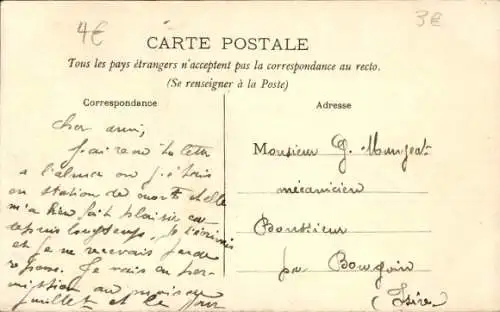 4€
3€
CARTE POSTALE
Tous les pays étrangers n'acceptent pas la correspondance au recto.
(Se renseigner à la Poste)
Correspondance
Adresse
Cher ami,
J'ai reçu ta lettre
a l'
en station de et elle
m'a bien fait plaisir car
depuis longtemps, Je t'écrivais
et je ne recevais pas de
reponse. Je vais en per
mission au mois de
juillet et le
Monsieur G.
mécanicien
par Bourgoin
(Isère)